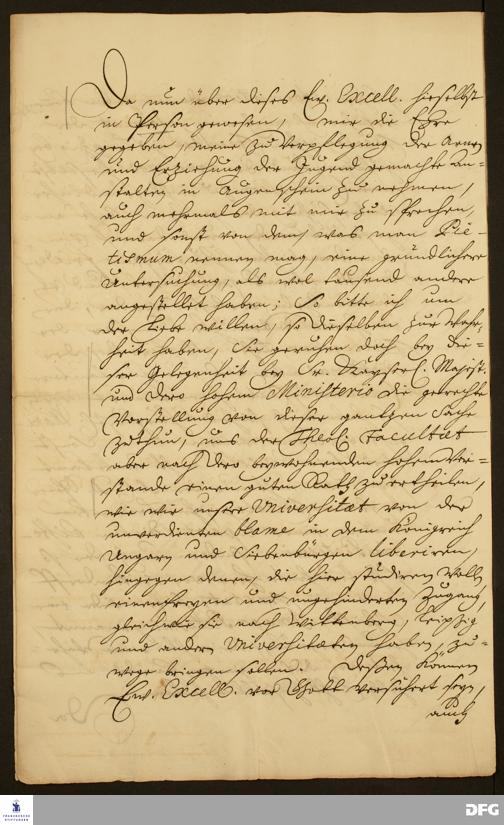 Da nun über dieses Ew. Excell. hieselbst
in Person gewesen, mir die Ehre
gegeben, meine zu Verpflegung der Armen
und Erziehung der Jugend gemachte An-
stalten in Augenschein zu nehmen,
auch mehrmals mit mir zu sprechen,
und sonst von dem, was man Pie-
tismum nennen mag, eine gründlichere
Untersuchung, als wol tausend andere
angestellet haben; So bitte ich um
der Liebe willen, so dieselben zur Wahr-
heit haben, Sie geruhen doch bey die-
ser Gelegenheit bey Sr. Kayserl. Majest.
und Dero hohem Ministerio die gerechte
Vorstellung von dieser gantzen Sache
zu thun, uns der Theol. Facultät
aber nach Dero beywohnenden hohem Ver-
stande einen guten Rath zu ertheilen,
wie wir unsre Universitaet von der
unverdienten blame in dem Königreich
Ungarn und Siebenbürgen liberiren,
hingegen denen, die hier studiren wolle
einen freyen und ungehinderten Zugang,
gleichwie sie nach Wittenberg, Leipzig
und andern Universitaeten haben, zu-
wege bringen sollen. Deßen können
Ew. Excell. vor Gott versichert seyn,
auch
FRANCKESCHE
STIFTUNGEN
DFG